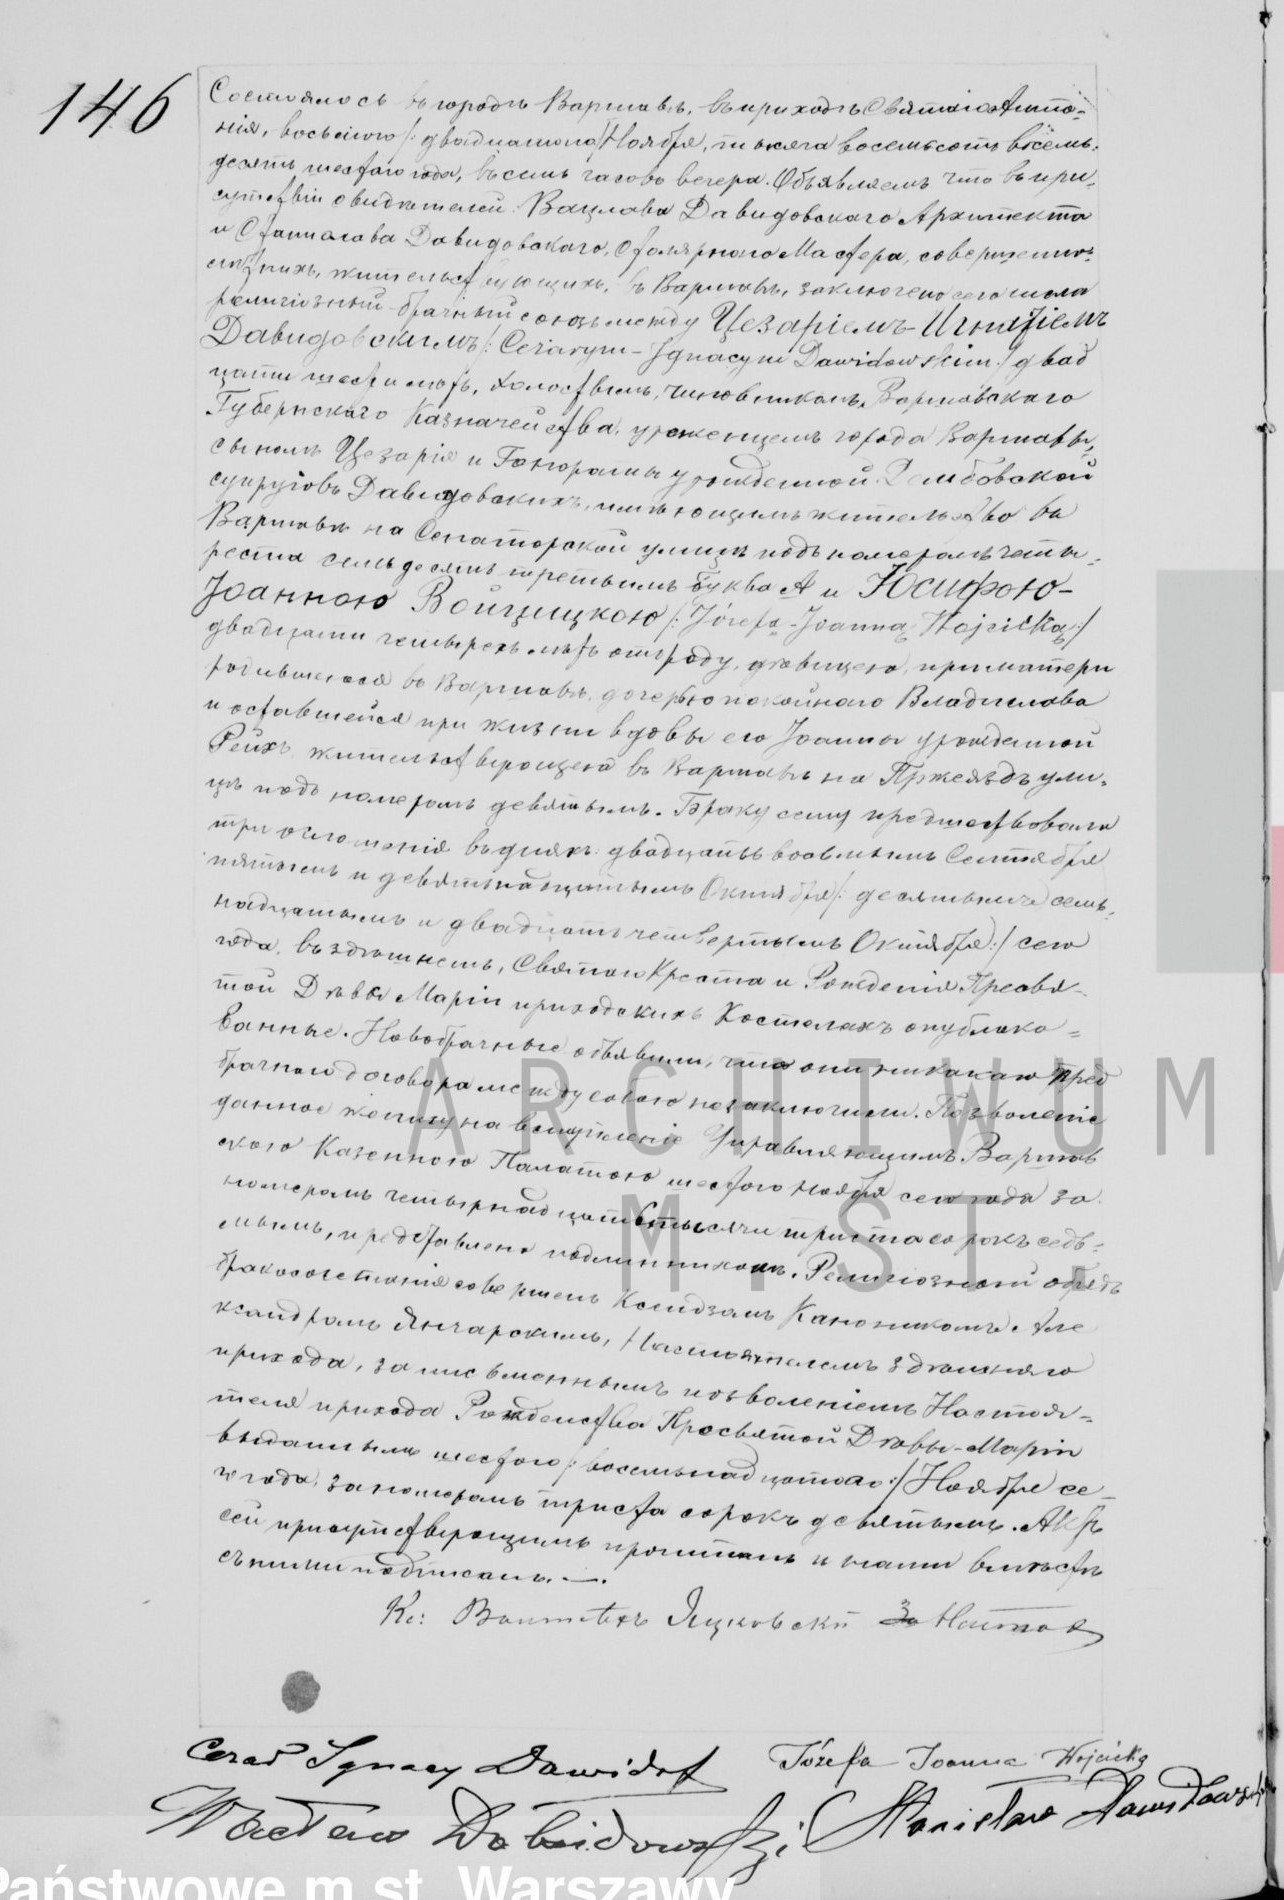 146
Состоялось въ городѣ Варшавѣ, въ приходѣ Святаго Анто-
нія, восьмаго /: двадцатаго/ Ноября, тысяча восемьсотъ восемь-
десятъ шестаго года, въ семь часовъ вечера. Объявляемъ что въ при-
сутствіи свидѣтелей: Вацлава Давидовскаго Архитекта
и Станислава Давидовскаго, столярнаго Мастера, совершенно-
лѣтнихъ, жительствующихъ, въ Варшавѣ, заключено сего числа
религіозный брачный союзъ между Цезаріемъ-Игнатіемъ
Давидовскимъ /: Cezarym-Ignacym Dawidowskim :/ двад
цати шести лѣтъ, холостымъ, чиновникомъ Варшавскаго
Губернскаго Казначейства, уроженцемъ города Варшавы,
сыномъ Цезарія и Гонораты урожденной Рембовской
супруговъ Давидовскихъ, имѣющимъ жительство въ
Варшавѣ на Сенаторской улицѣ подъ номеромъ четы-
реста семьдесятъ третьимъ буква А и Юсифою-
Іоанною Войцицкою /: Józefą-Joanną Wojcicką :/
двадцати четырехъ лѣтъ отъ роду, дѣвицею, при матери
родившеюся въ Варшавѣ, дочерью покойнаго Владислава
и оставшейся при жизни вдовы его Іоанны урожденной
Рейхъ, жительствующею въ Варшавѣ на Пржеяздъ ули-
цѣ подъ номеромъ девятымъ. Браку сему предшествовали
три оглашенія въ дняхъ: двадцать восьмымъ Сентября
пятымъ и девятнадцатымъ Октября /: десятымъ семь-
надцатымъ и двадцать четвертымъ Октября :/ сего
года, въ здѣшнемъ, Святаго Креста и Рожденія Пресвя-
той Дѣвы Маріи приходскихъ Костелахъ опублико-
ванные. Новобрачные объявили, что они никакаго пред
брачнаго договора между собою незаключили. Позволеніе
данное жениху на вступленіе Управляющимъ Варшав
скою Казенною Палатою шестого Ноября сего года за
номеромъ четырнадцать тысячи триста сорокъ седь-
мымъ, представлено подлинникомъ. Религіозный обрядъ
бракосочетанія совершенъ Ксендзомъ Каноникомъ Але
ксандромъ Янчарскимъ, Настоятелемъ здѣшняго
прихода, за письменнымъ позволеніемъ Настоя-
теля прихода Рождества Пресвятой Дѣвы-Маріи
выданнымъ шестого /: восемьнадцатаго :/ Ноября се-
го года, за номеромъ триста сорокъ девятымъ. Актъ
сей присутствующимъ прочитанъ и нами вмѣстѣ
съ ними подписанъ. —.
Кс: Войтѣхъ за Настоя
Ignacy Józefa Joanna Wojcicka
Wacław Dawidowski Stanisław Dawidowski
ARCHIWUM
M. ST.
Państwowe m.st. Warszawy